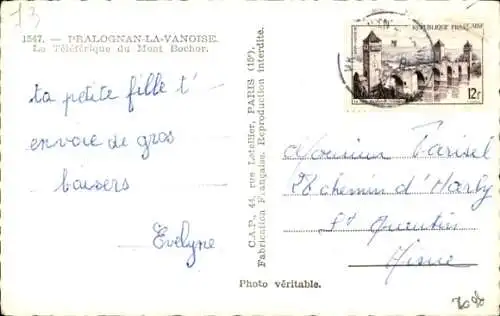 73
1547. — PRALOGNAN-LA-VANOISE.
Le Téléférique du Mont Bochor.
ta petite fille t'
envoie de gros
baisers
Evelyne
C.A.P., 44, rue Letellier, PARIS (15e).
Fabrication Française. Reproduction interdite.
Photo véritable.
REPUBLIQUE FRANÇAISE
12f
Monsieur Parisel
28 chemin d'Harly
St Quentin
Aisne